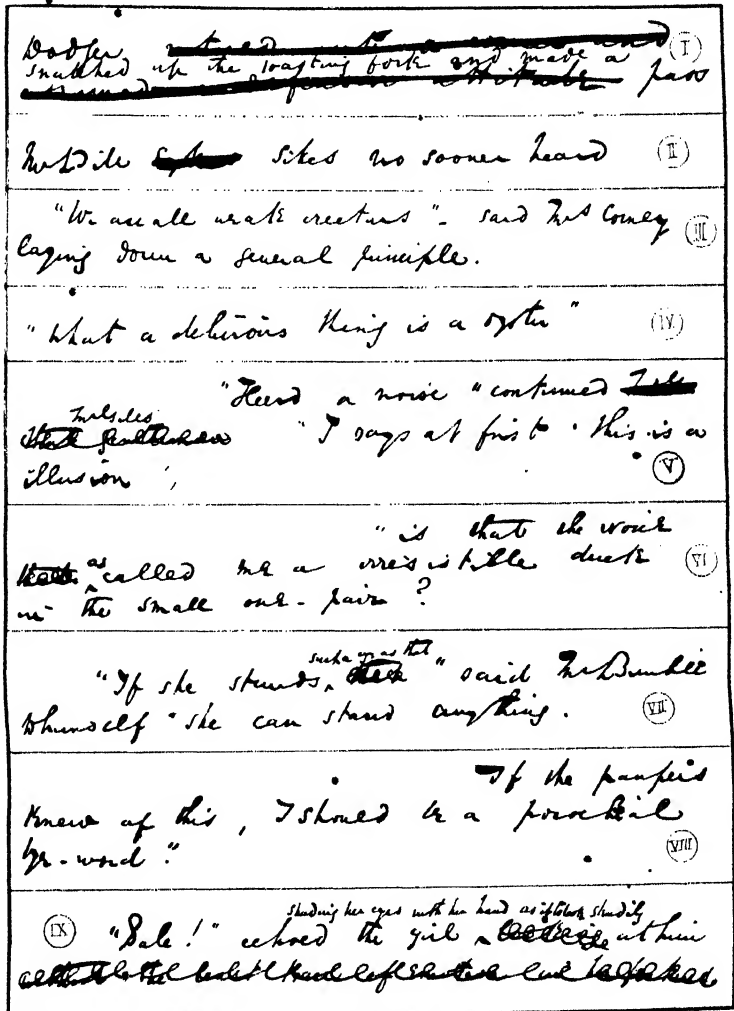 Dodger
snatched up the toasting fork and made a
pass
(I)
Mr Bill Sikes no sooner heard (II)
"We are all weak creeturs" - said Mrs Corney (III)
laying down a general principle.
"What a delicious thing is a oyster" (IV)
"Heerd a noise" continued
Mr Giles
"I says at first ' this is a
illusion (V)
"is that the voice
as called me a irresistible duck (VI)
in the small one-pair?
such a eye as that
"If she stands, " said Mr Bumble
to himself "she can stand anything. (VII)
If the paupers
knew of this, I should be a porochial
bye-word." (VIII)
shading her eyes with her hand as if to look steadily
(IX) "Bale!" echoed the girl at him